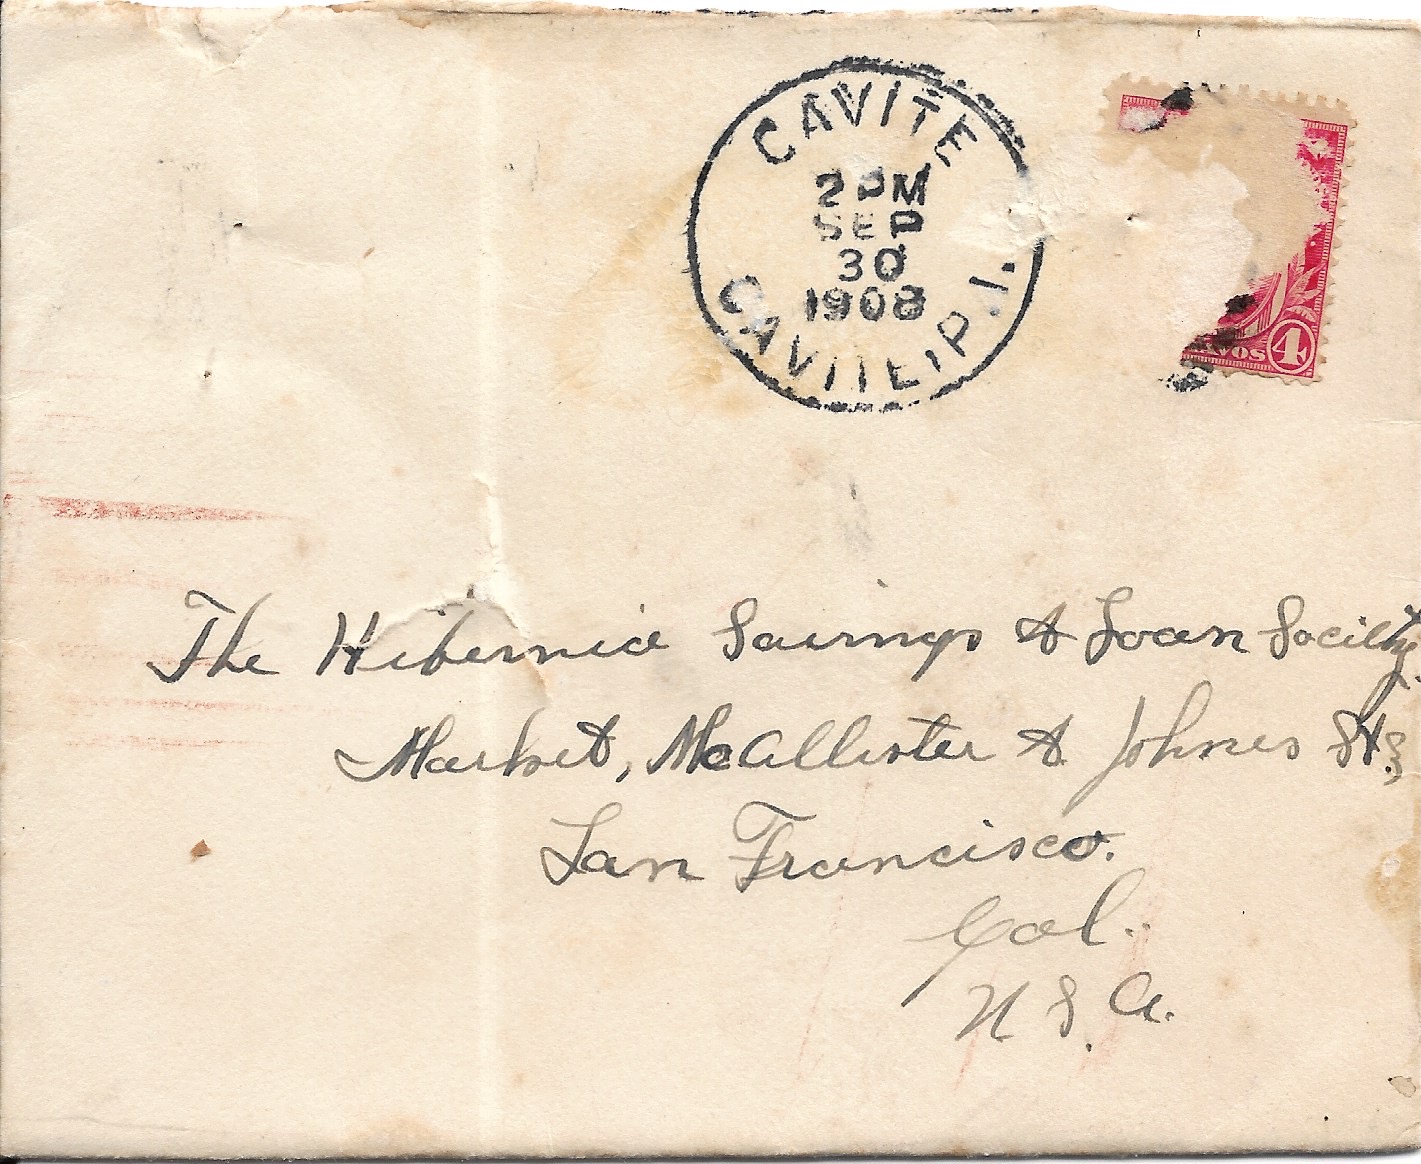 CAVITE
2 PM
SEP
30
1908
CAVITE, P.I.
4
The Hibernia Savings & Loan Society.
Market, McAllister & Johnes St.,
San Francisco.
Cal.
U.S.A.